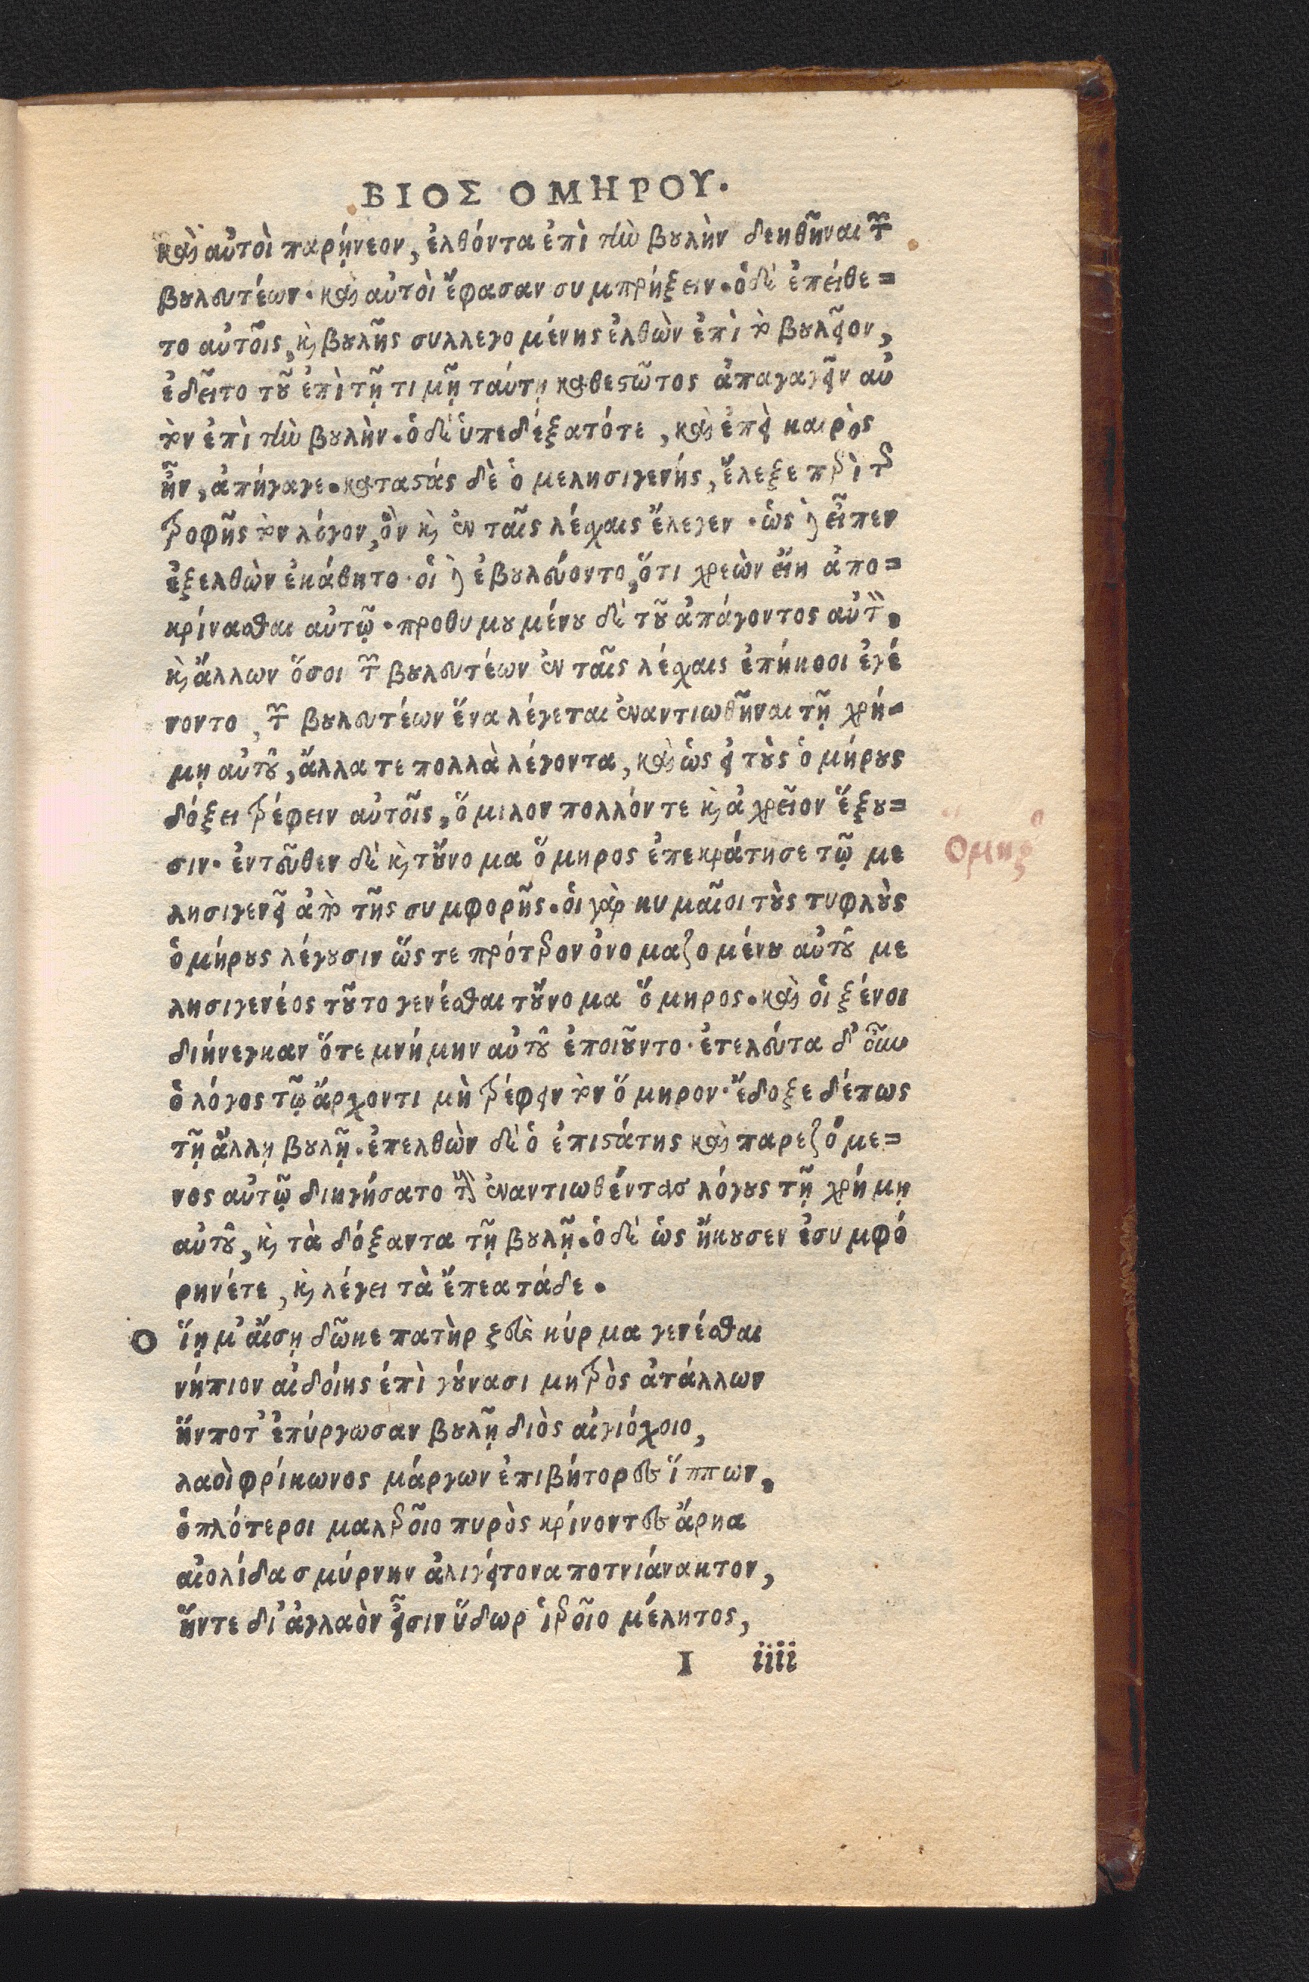 ΒΙΟΣ ΟΜΗΡΟΥ.
καὶ αὐτοὶ παρῄνεον, ἐλθόντα ἐπὶ τὴν βουλὴν δεηθῆναι τῶν
βουλευτέων. καὶ αὐτοὶ ἔφασαν συμπρήξειν. ὁ δὲ ἐπείθε=
το αὐτοῖς, καὶ βουλῆς συλλεγομένης ἐλθὼν ἐπὶ τὸ βουλεῖον,
ἐδεῖτο τοῦ ἐπὶ τῇ τιμῇ ταύτῃ καθεστῶτος ἀπαγαγεῖν αὐ
τὸν ἐπὶ τὴν βουλὴν. ὁ δὲ ὑπεδέξατότε, καὶ ἐπεὶ καιρὸς
ἦν, ἀπήγαγε. καταστάς δὲ ὁ μελησιγενής, ἔλεξε περὶ τῆς
τροφῆς τὸν λόγον, ὃν καὶ ἐν ταῖς λέχαις ἔλεγεν. ὡς δὲ εἶπεν
ἐξελθὼν ἐκάθητο. οἱ δὲ ἐβουλεύοντο, ὅτι χρεὼν εἴη ἀπο=
κρίνασθαι αὐτῷ. προθυμουμένου δὲ τοῦ ἀπάγοντος αὐτὸν,
καὶ ἄλλων ὅσοι τῶν βουλευτέων ἐν ταῖς λέχαις ἐπήκοοι ἐγέ
νοντο, τῶν βουλευτέων ἕνα λέγεται ἐναντιωθῆναι τῇ χρή=
μῃ αὐτοῦ, ἄλλα τε πολλὰ λέγοντα, καὶ ὡς εἰ τοὺς ὁμήρους
δόξει τρέφειν αὐτοῖς, ὅμιλον πολλόν τε καὶ ἀχρεῖον ἕξου=
σιν. ἐντεῦθεν δὲ καὶ τοὔνομα ὅμηρος ἐπεκράτησε τῷ με
λησιγενεῖ ἀπὸ τῆς συμφορῆς. οἱ γὰρ κυμαῖοι τοὺς τυφλοὺς
ὁμήρους λέγουσιν ὥς τε πρότερον ὀνομαζομένου αὐτοῦ με
λησιγενέος τοῦτο γενέσθαι τοὔνομα ὅμηρος. καὶ οἱ ξένοι
διήνεγκαν ὅτε μνήμην αὐτοῦ ἐποιοῦντο. ἐτελεύτα δ' οὖν
ὁ λόγος τῷ ἄρχοντι μὴ τρέφειν τὸν ὅμηρον. ἔδοξε δέπως
τῇ ἄλλῃ βουλῇ. ἐπελθὼν δὲ ὁ ἐπιστάτης καὶ παρεζόμε=
νος αὐτῷ διηγήσατο τοὺς ἐναντιωθέντας λόγους τῇ χρήμῃ
αὐτοῦ, καὶ τὰ δόξαντα τῇ βουλῇ. ὁ δὲ ὡς ἤκουσεν ἐσυμφό
ρηνέτε, καὶ λέγει τὰ ἔπεα τάδε.
Ο ἵῃ μ' αἴσῃ δῶκε πατὴρ ζεὺς κύρμα γενέσθαι
νήπιον αἰδοίης ἐπὶ γούνασι μητρὸς ἀτάλλων
ἥνποτ' ἐπύργωσαν βουλῇ διὸς αἰγιόχοιο,
λαοὶ φρίκωνος μάργων ἐπιβήτορες ἵππων,
ὁπλότεροι μαλεροῖο πυρὸς κρίνοντες ἄρηα
αἰολίδα σμύρνην ἁλιγείτονα ποτνιάνακτον,
ἥντε δι' ἀγλαὸν εἶσιν ὕδωρ ἱεροῖο μέλητος,
Ι iiii
Ὅμηρος